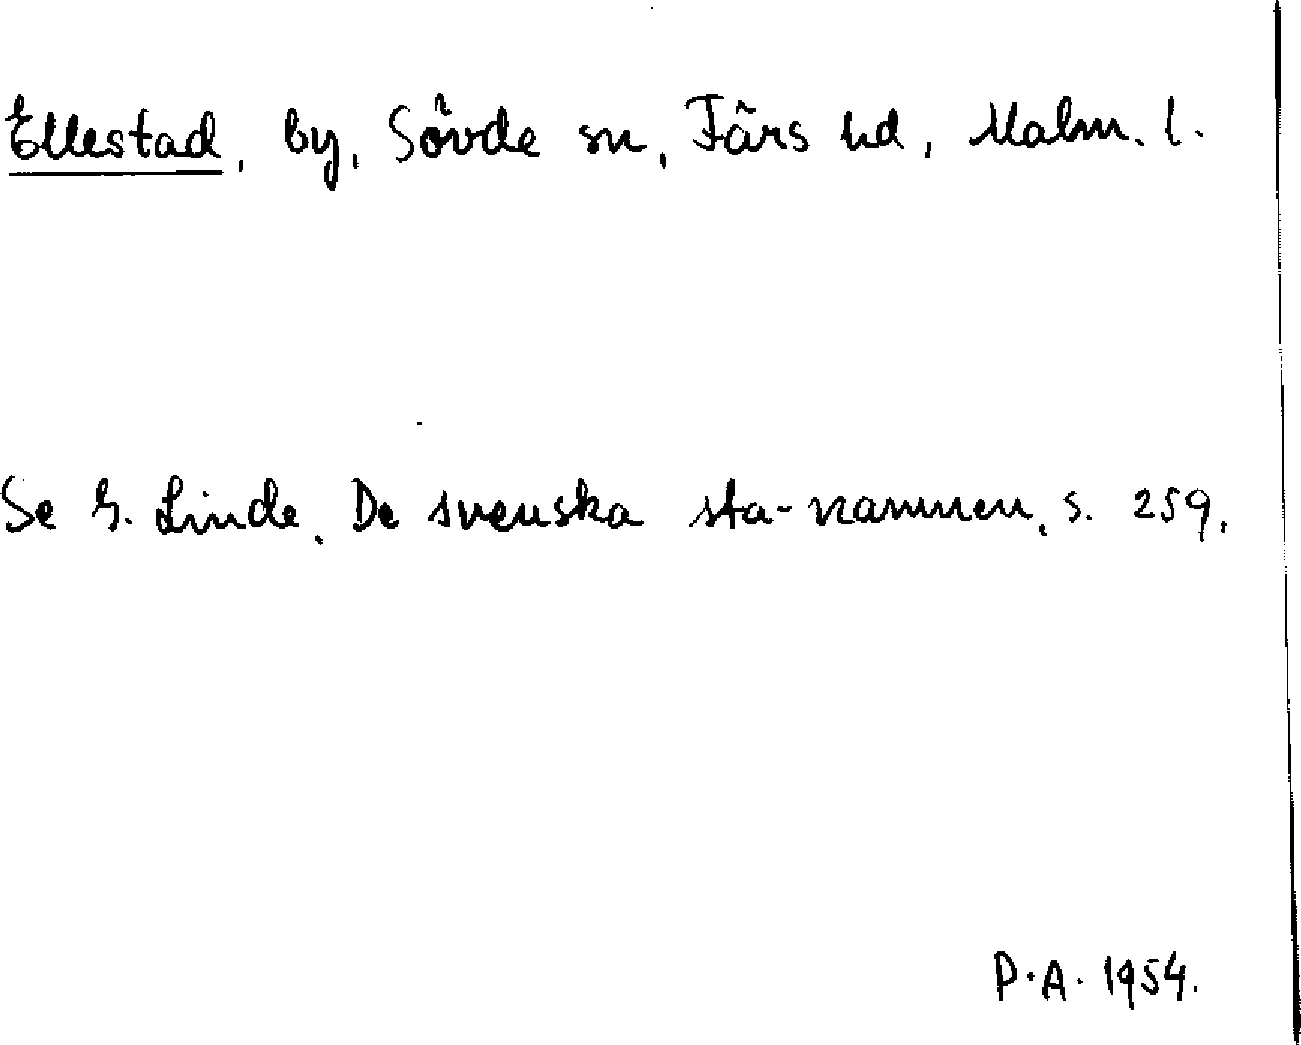 Ellestad, by, Sövde sn, Färs hd, Malm. l.
Se G. Linde, De svenska sta-namnen, s. 259.
P.A. 1954.